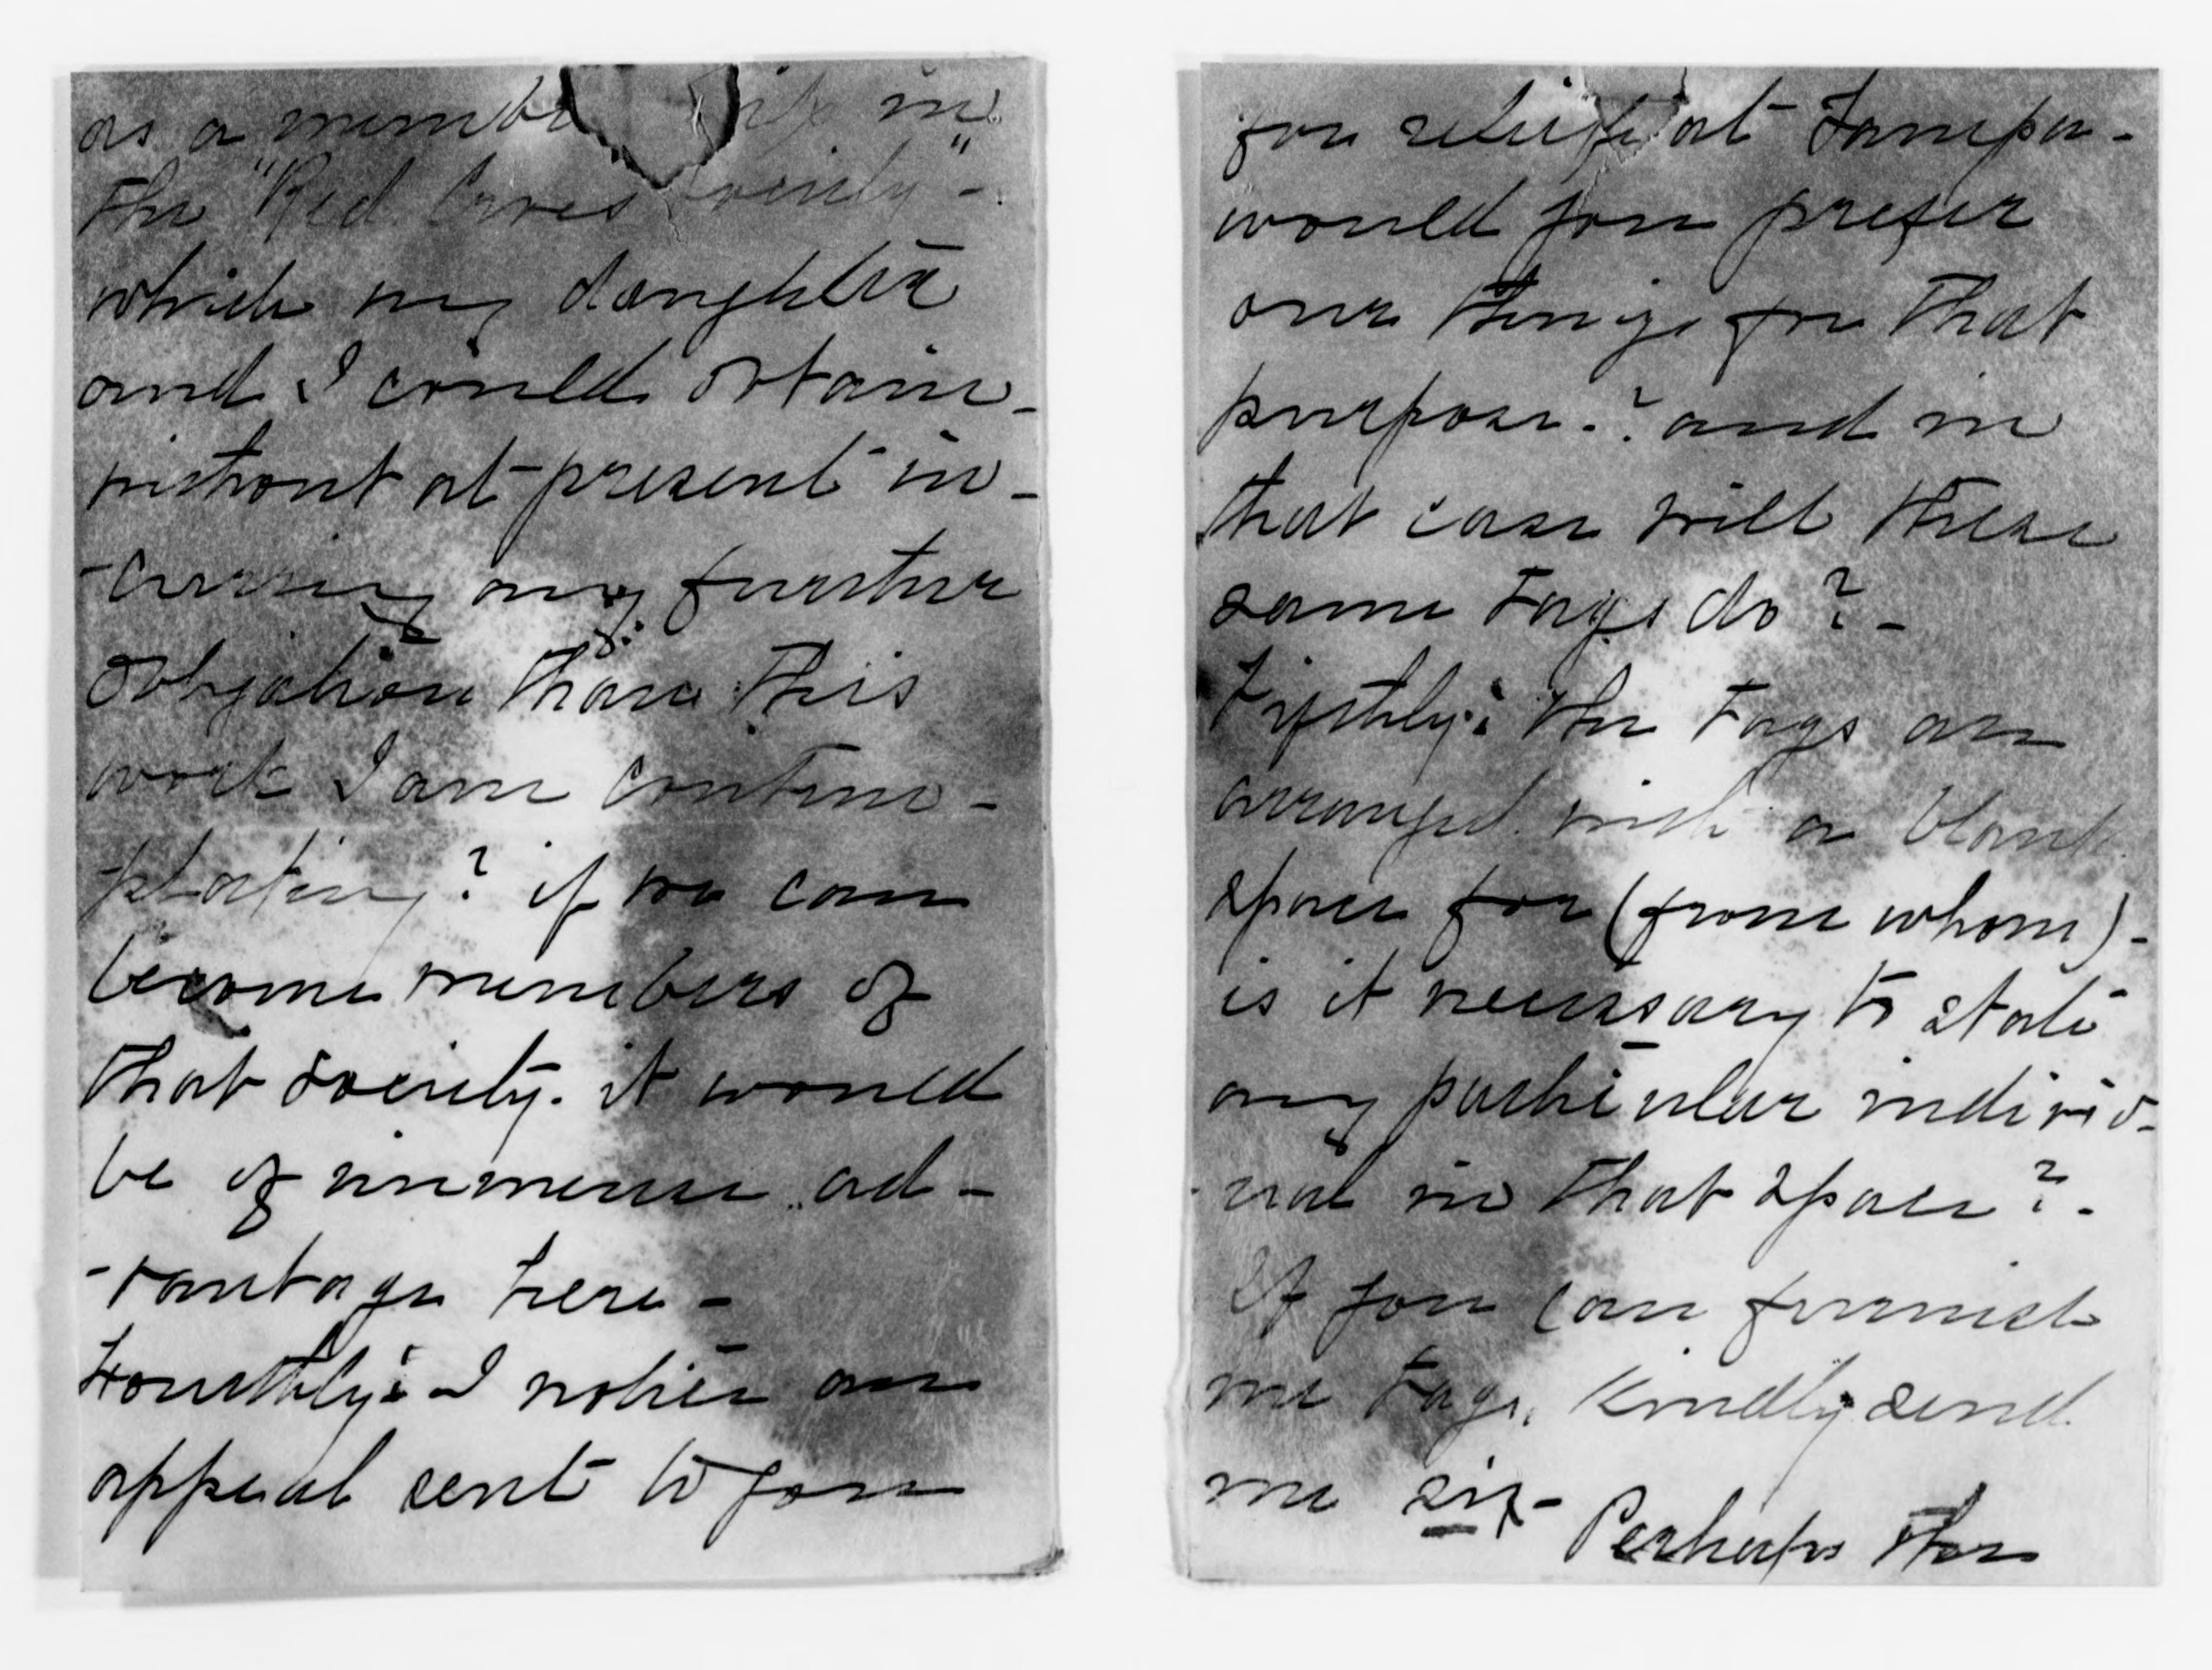 as a membe in
the "Red Cross Society" -
which my daughter
and I could obtain -
without at present in -
- curring any further
obligation than this
work I am contem -
- plating? if we can
become members of
that society. it would
be of immense ad -
- vantage here -
Fourthly: I notice an
appeal sent to you
for relief at Tampa -
would you prefer
our things for that
purpose -? and in
that case will these
same Tags do? -
Fifthly: The Tags are
arranged with a blank
space for (from whom) -
is it necessary to state
any particular individ -
- ual in that space? -
If you can furnish
me Tags, kindly send
me six -
Perhaps the